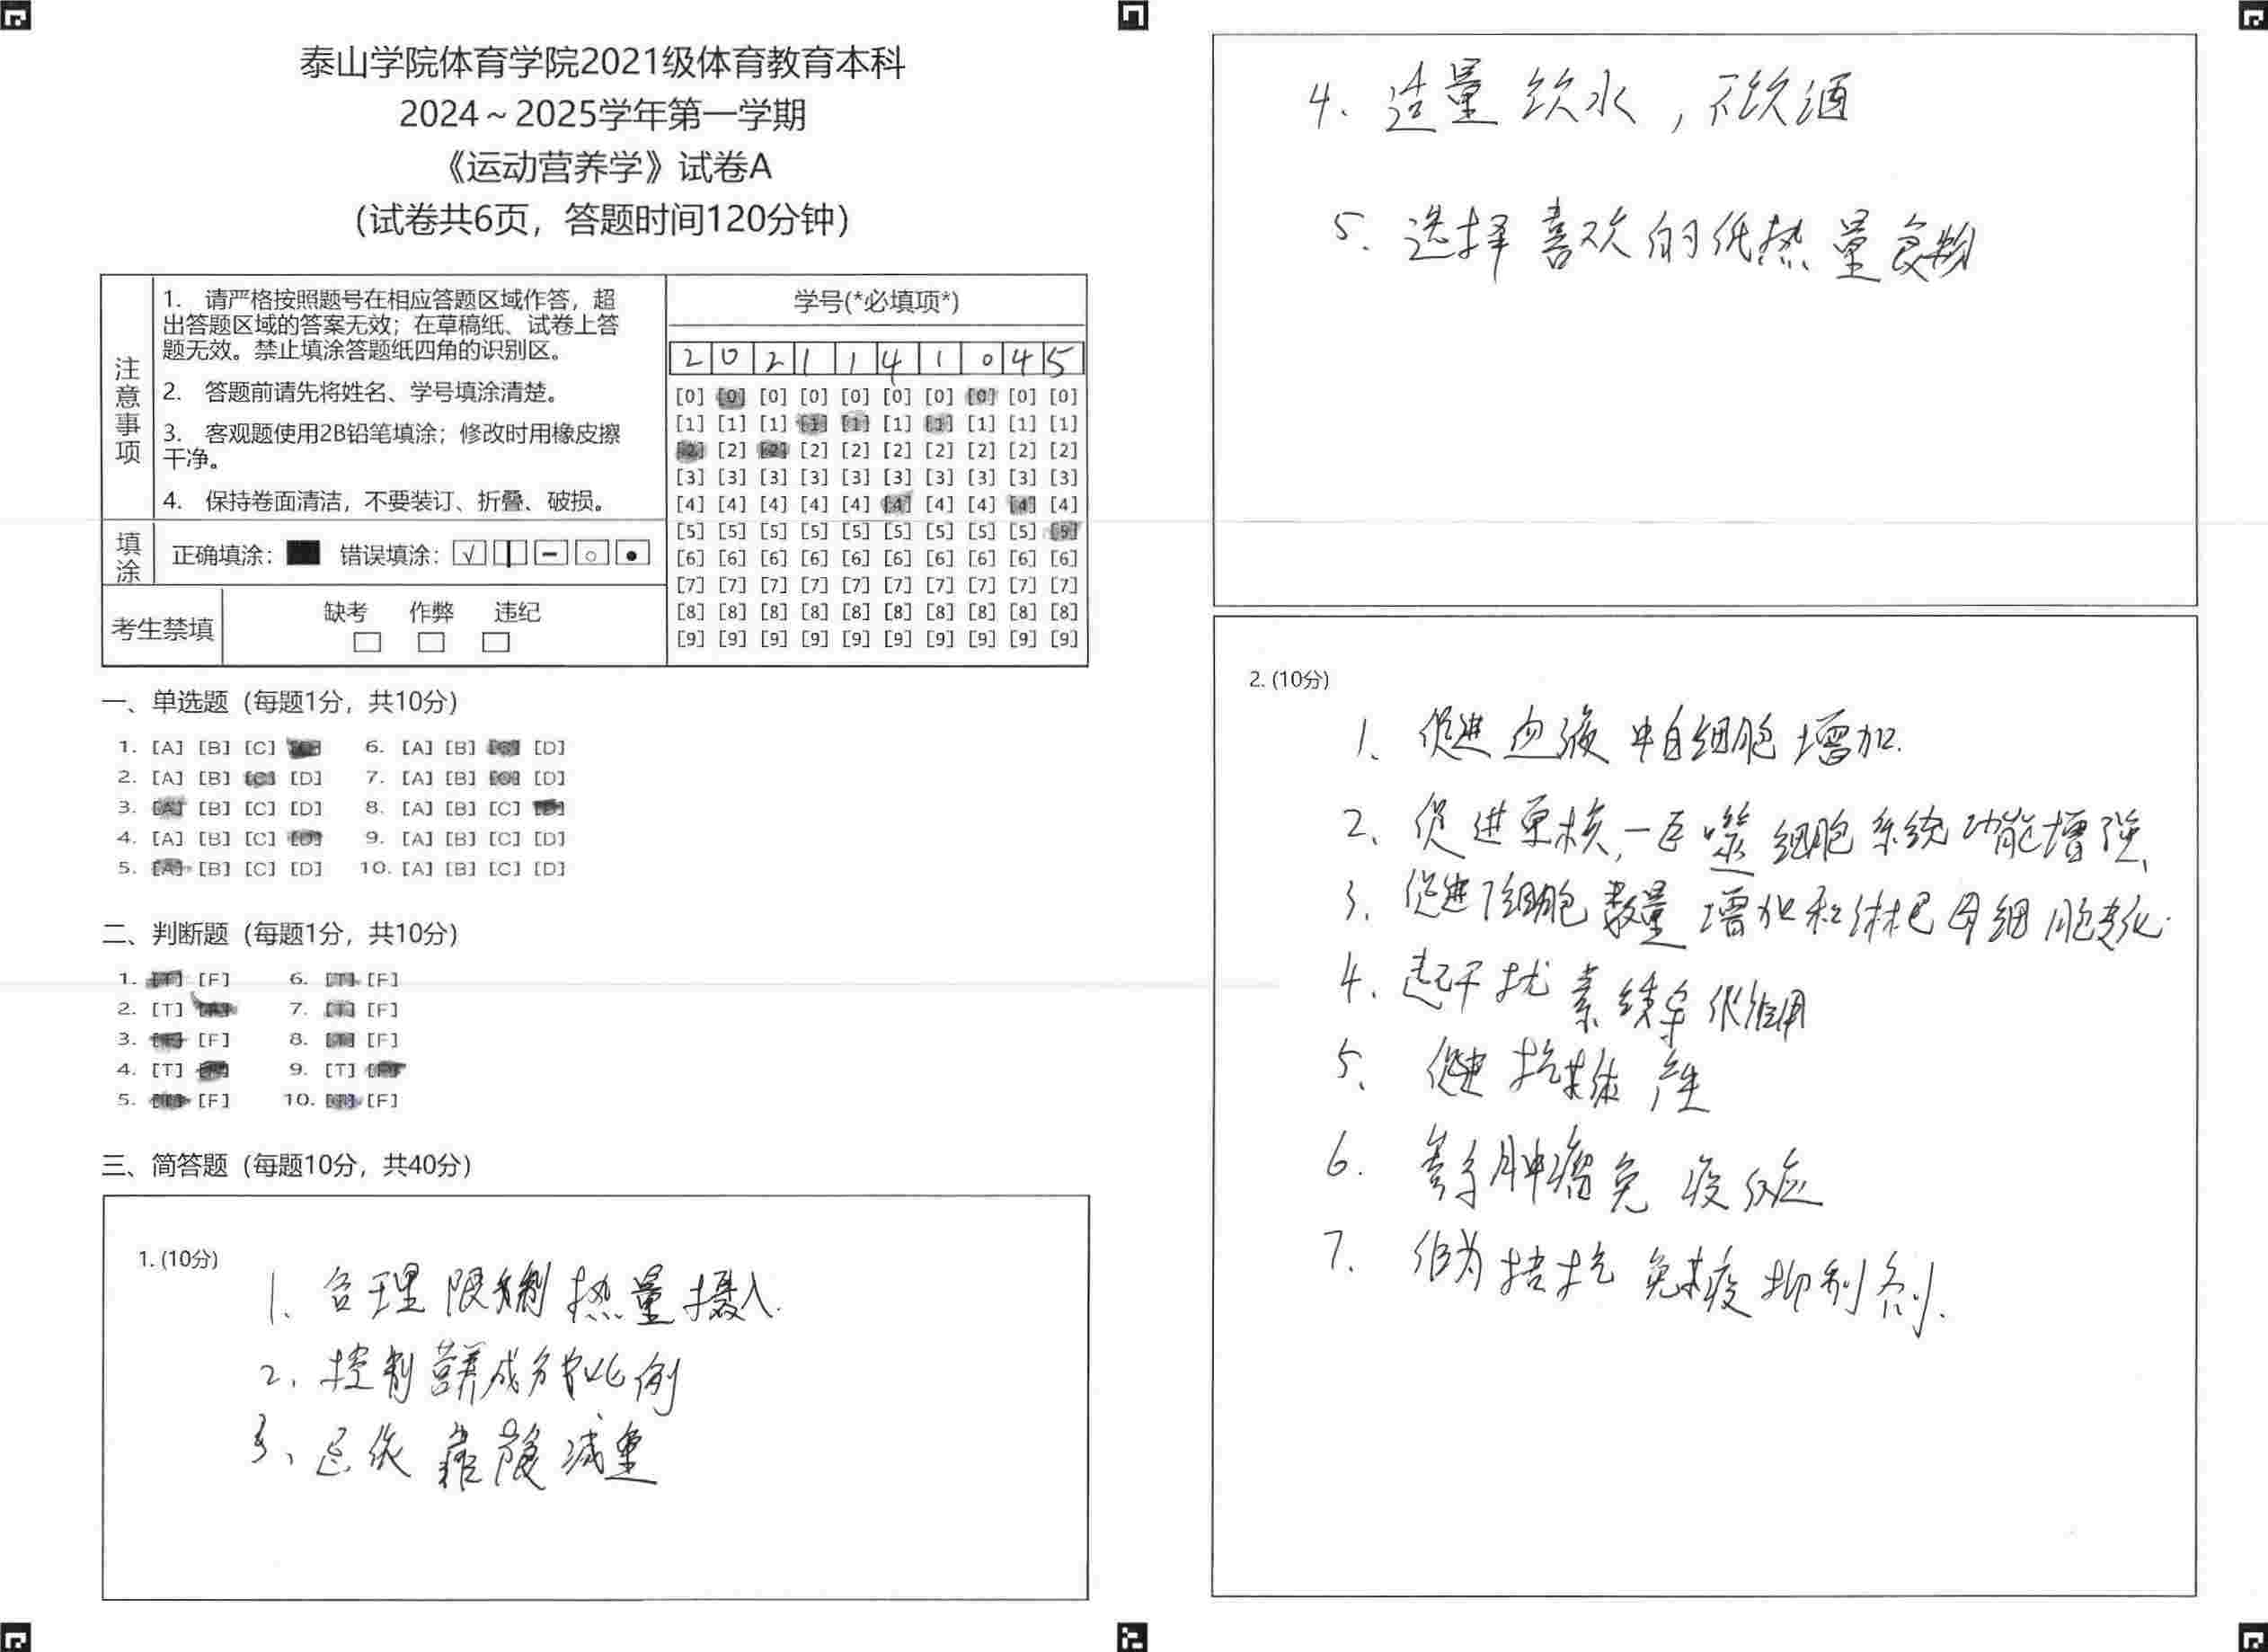 泰山学院体育学院2021级体育教育本科
2024～2025学年第一学期
《运动营养学》试卷A
(试卷共6页，答题时间120分钟)
注意事项
1. 请严格按照题号在相应答题区域作答，超
出答题区域的答案无效；在草稿纸、试卷上答
题无效。禁止填涂答题纸四角的识别区。
2. 答题前请先将姓名、学号填涂清楚。
3. 客观题使用2B铅笔填涂；修改时用橡皮擦
干净。
4. 保持卷面清洁，不要装订、折叠、破损。
填涂
正确填涂： 错误填涂：
考生禁填
缺考 作弊 违纪
学号(*必填项*)
2 0 2 1 1 4 1 0 4 5
[0] [0] [0] [0] [0] [0] [0] [0] [0] [0]
[1] [1] [1] [1] [1] [1] [1] [1] [1] [1]
[2] [2] [2] [2] [2] [2] [2] [2] [2] [2]
[3] [3] [3] [3] [3] [3] [3] [3] [3] [3]
[4] [4] [4] [4] [4] [4] [4] [4] [4] [4]
[5] [5] [5] [5] [5] [5] [5] [5] [5] [5]
[6] [6] [6] [6] [6] [6] [6] [6] [6] [6]
[7] [7] [7] [7] [7] [7] [7] [7] [7] [7]
[8] [8] [8] [8] [8] [8] [8] [8] [8] [8]
[9] [9] [9] [9] [9] [9] [9] [9] [9] [9]
一、单选题 (每题1分，共10分)
1. [A] [B] [C] [D] 6. [A] [B] [C] [D]
2. [A] [B] [C] [D] 7. [A] [B] [C] [D]
3. [A] [B] [C] [D] 8. [A] [B] [C] [D]
4. [A] [B] [C] [D] 9. [A] [B] [C] [D]
5. [A] [B] [C] [D] 10. [A] [B] [C] [D]
二、判断题 (每题1分，共10分)
1. [T] [F] 6. [T] [F]
2. [T] [F] 7. [T] [F]
3. [T] [F] 8. [T] [F]
4. [T] [F] 9. [T] [F]
5. [T] [F] 10. [T] [F]
三、简答题 (每题10分，共40分)
1. (10分)
1、合理限制热量摄入.
2、控制营养成分比例
3、忌依靠药减重
4、适量饮水，不饮酒
5、选择喜欢的低热量食物
2. (10分)
1、促进血液中白细胞增加.
2、促进单核,一巨噬细胞系统功能增强、
3、促进T细胞数量增加和淋巴母细胞转化.
4、起干扰素 作用
5、促进抗体产生
6. 参与肿瘤免疫 应
7. 作为拮抗免疫抑制剂.